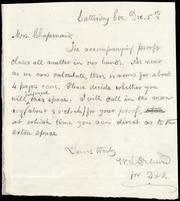 Saturday Eve. Dec. 5th
Mrs. Chapman:
The accompanying proofs
closes all matter in our hands. As near
as we can calculate, there is room for about
4 pages more. Please decide whether you
will use this space. I will call in the morn-
ing about 8 o'clock, for your proof,
at which time you can direct as to the
extra space.
Yours truly,
for